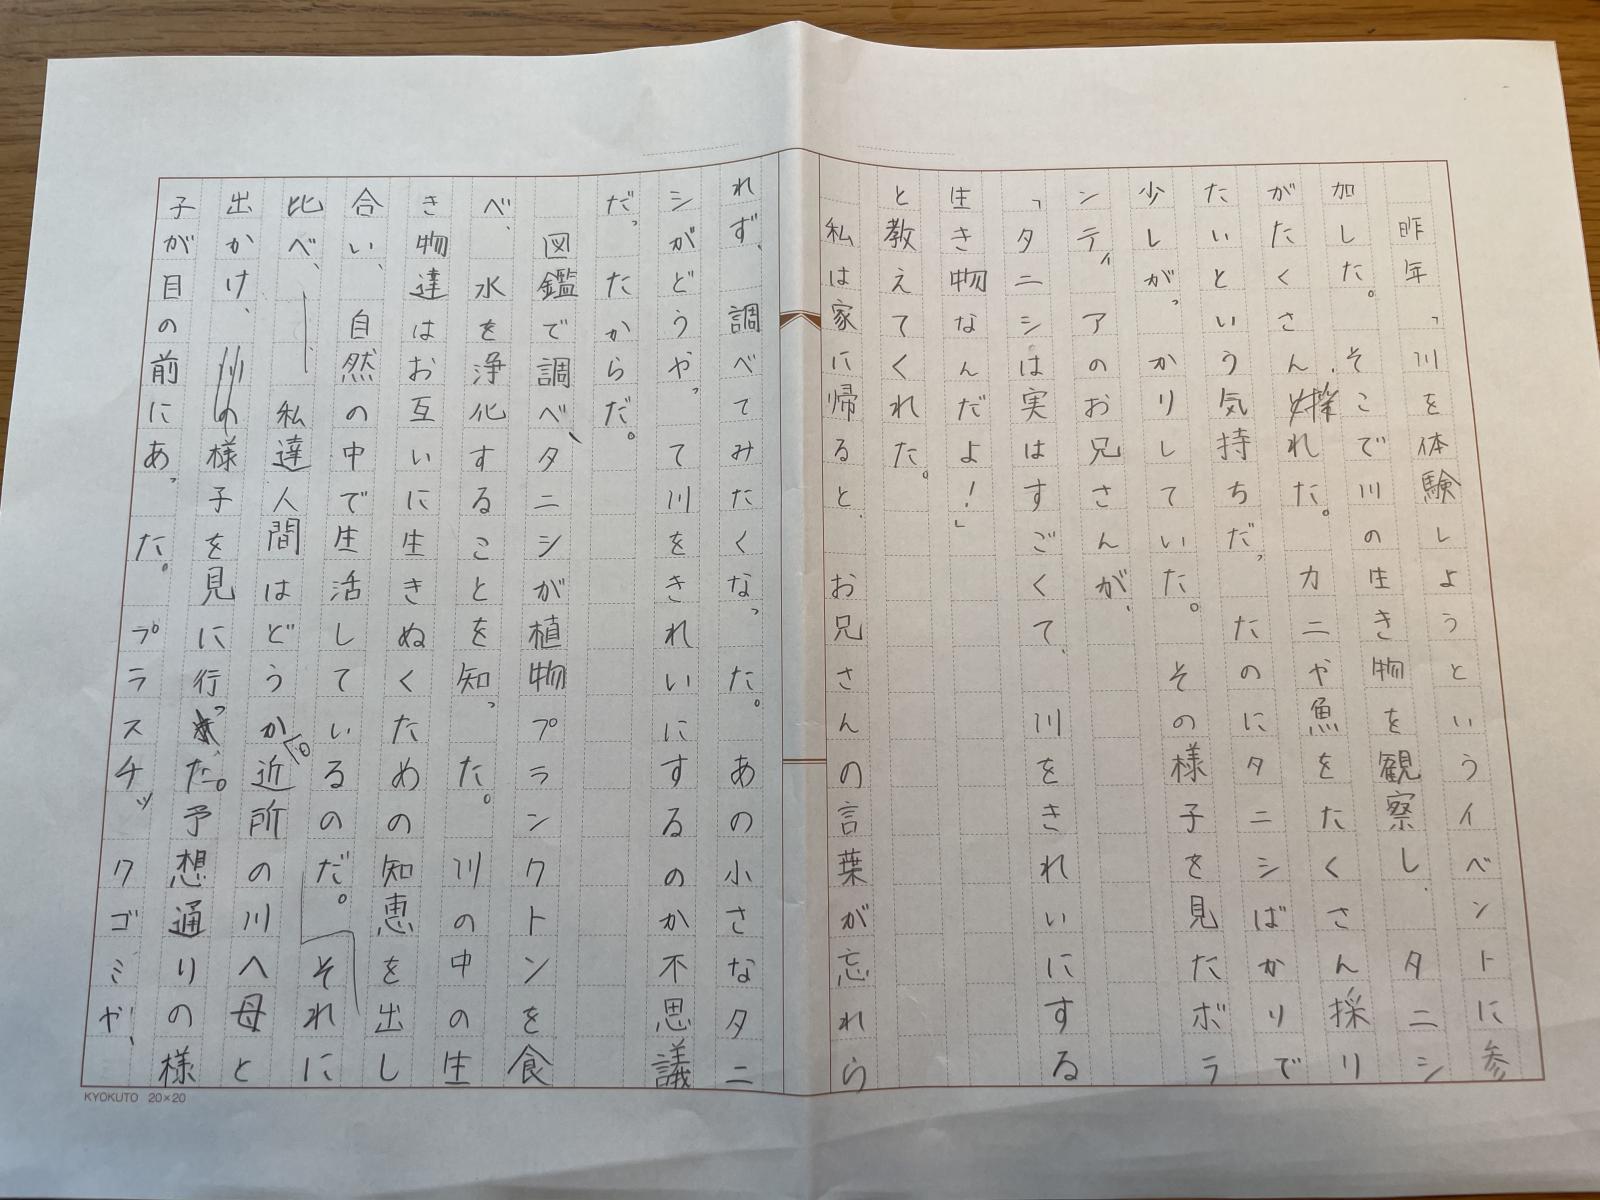 昨年、「川を体験しようというイベントに参
加した。そこで川の生き物を観察し、タニシ
がたくさん採れた。カニや魚をたくさん採り
たいという気持ちだったのにタニシばかりで
少しがっかりしていた。その様子を見たボラ
ンティアのお兄さんが、
「タニシは実はすごくて、川をきれいにする
生き物なんだよ！」
と教えてくれた。
私は家に帰ると、お兄さんの言葉が忘れら
れず、調べてみたくなった。あの小さなタニ
シがどうやって川をきれいにするのか不思議
だったからだ。
図鑑で調べ、タニシが植物プランクトンを食
べ、水を浄化することを知った。川の中の生
き物達はお互いに生きぬくための知恵を出し
合い、自然の中で生活しているのだ。それに
比べ、私達人間はどうか。近所の川へ母と
出かけ、様子を見に行った。予想通りの様
子が目の前にあった。プラスチックゴミや、
KYOKUTO 20×20